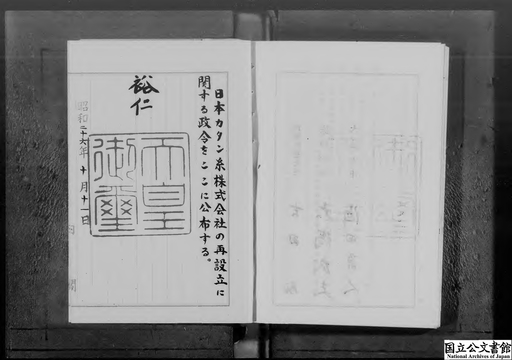 日本カタン糸株式会社の再設立に
関する政令をここに公布する。
裕仁
天皇
御璽
昭和二十六年十月十一日
国立公文書館
National Archives of Japan